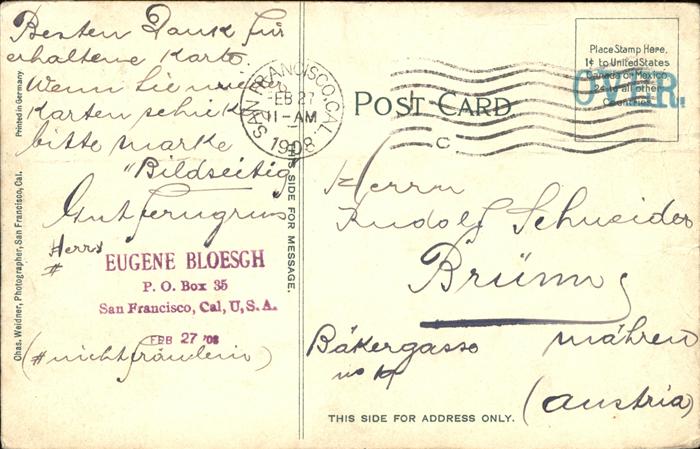 Besten Dank für
erhaltene Karte.
Wenn Sie wieder
Karten schick
bitte Marke
"Bildseitig
Gut ferngruss
Herrn
#
EUGENE BLOESCH
P. O. Box 35
San Francisco, Cal, U, S. A.
FEB 27 '08
(# nicht fräulein)
Chas. Weidner, Photographer, San Francisco, Cal.
Printed in Germany
SAN FRANCISCO, CAL.
FEB 27
11-AM
1908
THIS SIDE FOR MESSAGE.
POST CARD.
C
Place Stamp Here,
1¢ to United States
Canada or Mexico
2¢ to all other
Countries.
OVER.
Herrn
Rudolf Schneider
Brünn
Bäkergasse
no
Mähren
(Austria)
THIS SIDE FOR ADDRESS ONLY.